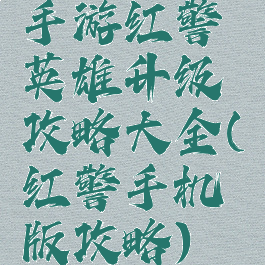 手游红警
英雄升级
攻略大全(
红警手机
版攻略)